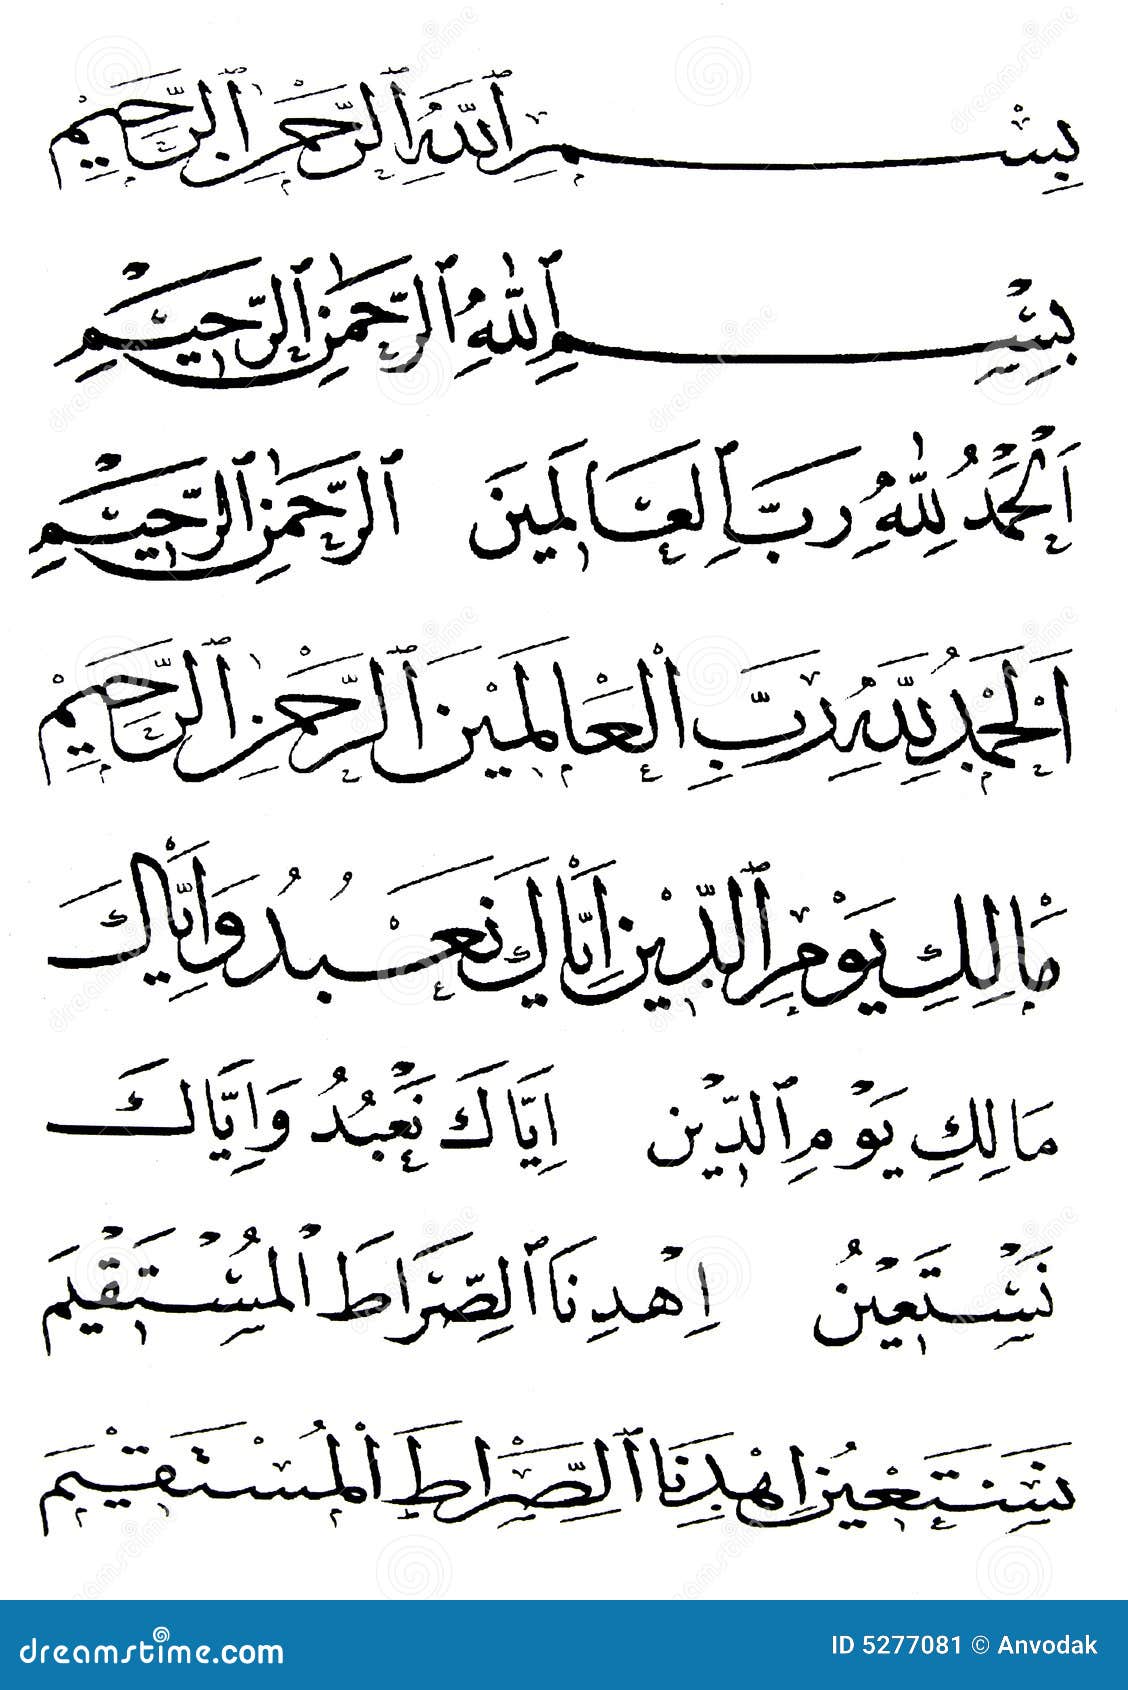 بِسْمِ اللَّهِ الرَّحْمٰنِ الرَّحِيْمِ
بِسْمِ اللّٰهِ الرَّحْمٰنِ الرَّحِيْمِ
اَلْحَمْدُ لِلّٰهِ رَبِّ الْعَالَمِينَ الرَّحْمٰنِ الرَّحِيْمِ
اَلْحَمْدُ لِلَّهِ رَبِّ الْعَالَمِيْنَ الرَّحْمٰنِ الرَّحِيْمِ
مَالِكِ يَوْمِ الدِّيْنِ اِيَّاكَ نَعْبُدُ وَاِيَّاكَ
مَالِكِ يَوْمِ الدِّيْنِ اِيَّاكَ نَعْبُدُ وَاِيَّاكَ
نَسْتَعِيْنُ اِهْدِنَا الصِّرَاطَ الْمُسْتَقِيْمَ
نَسْتَعِيْنُ اِهْدِنَا الصِّرَاطَ الْمُسْتَقِيْمَ
dreamstime.com ID 5277081 © Anvodak